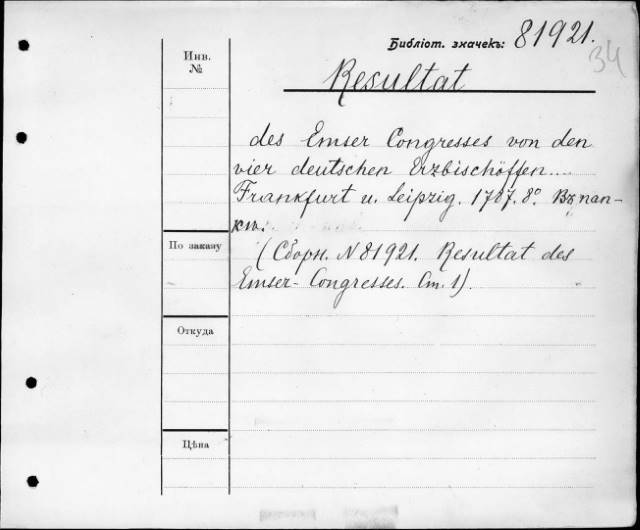 Библіот. значекъ: 81921.
34
Инв.
№
Resultat
des Emser Congresses von den
vier deutschen Erzbischöffen....
Frankfurt u. Leipzig. 1787. 8º. Въ пап-
кѣ.
По заказу
(Сборн. N 81921. Resultat des
Emser-Congresses. Ст. 1).
Откуда
Цѣна